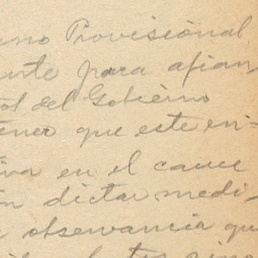 eno Provisional
ente para afian-
tol del Gobierno
tener que este en-
iva en el cauce
ón dictar medi-
a observancia qu